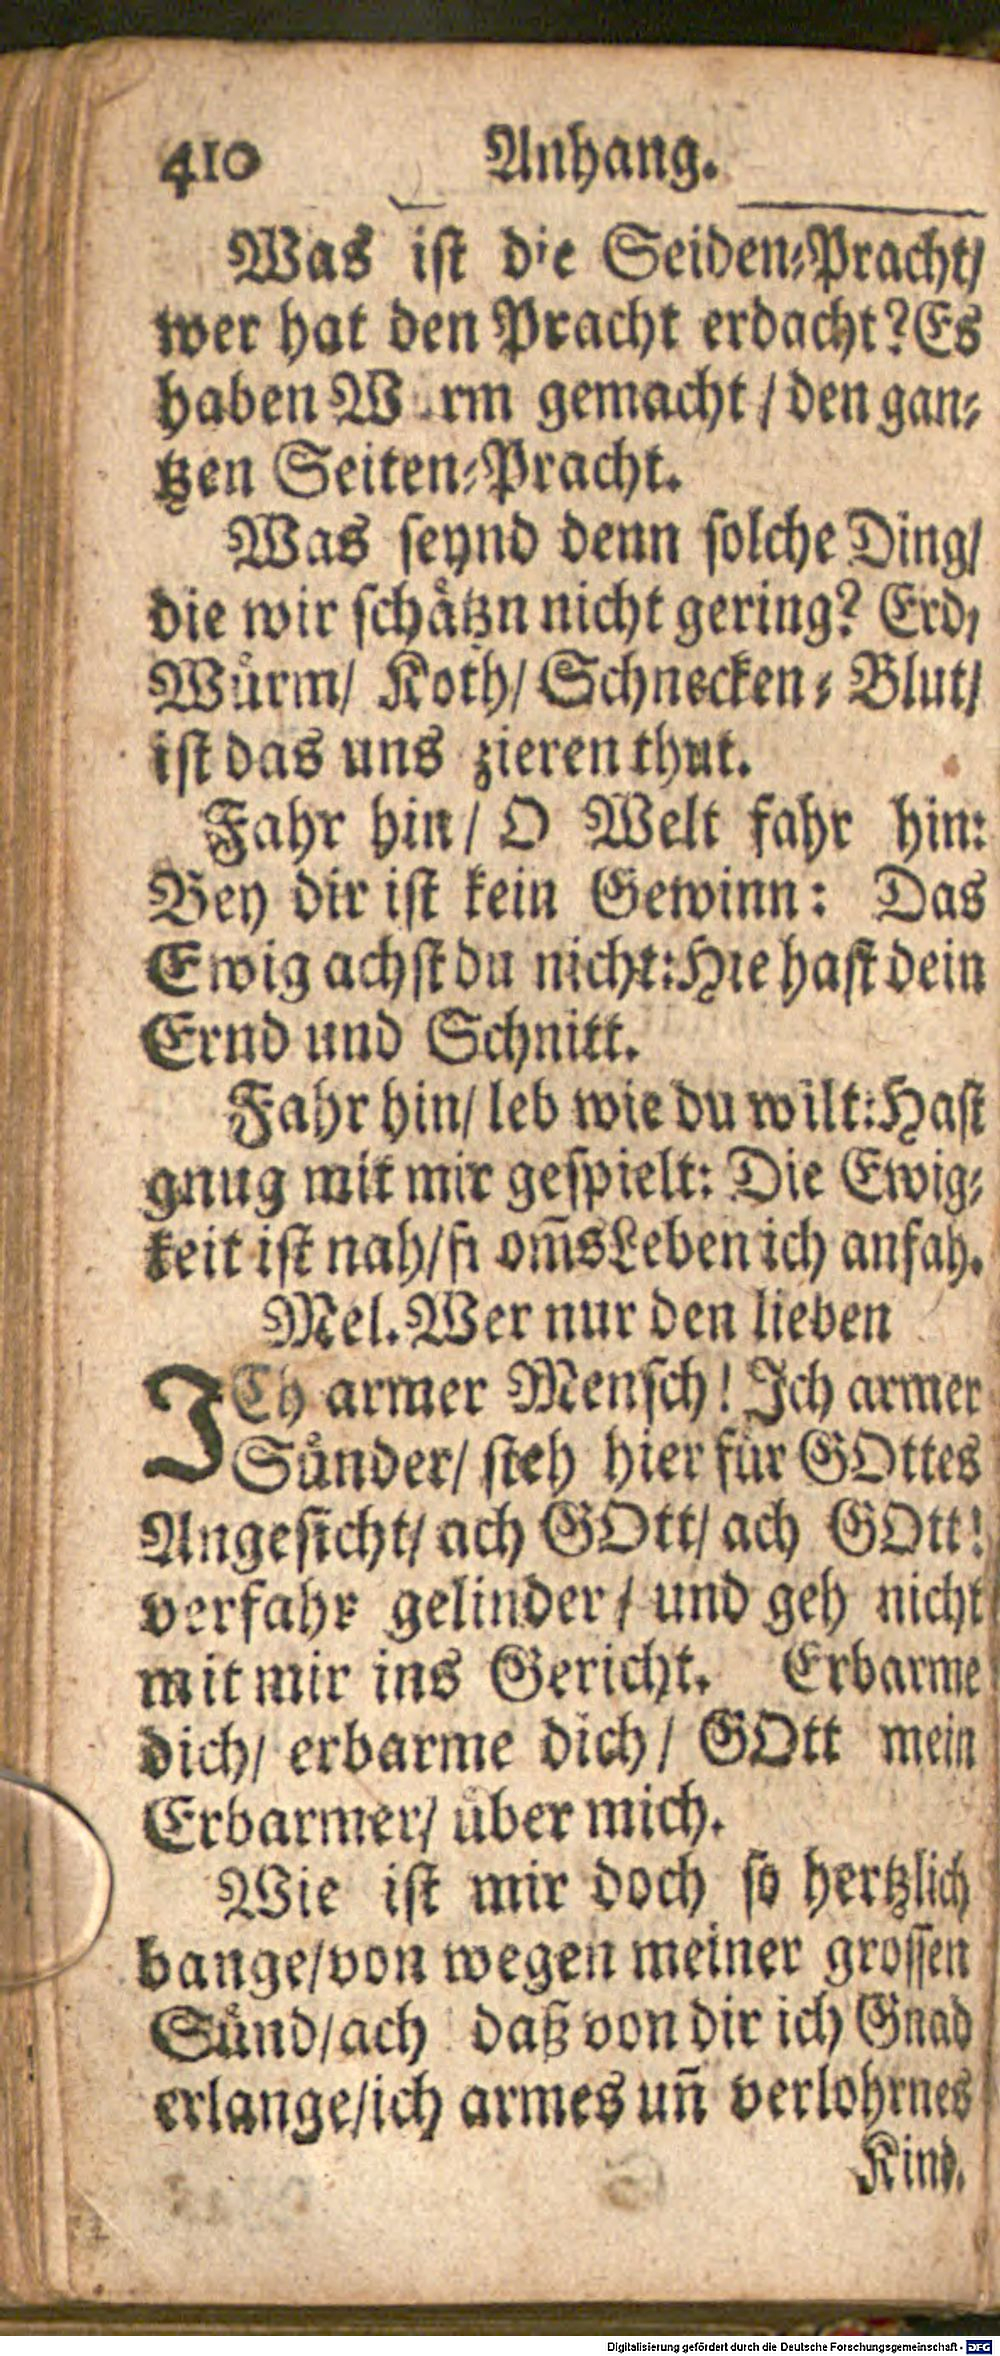 410 Anhang.
Was ist die Seiden-Pracht/
wer hat den Pracht erdacht? Es
haben W rm gemacht / den gan-
tzen Seiten-Pracht.
Was seynd denn solche Ding/
die wir schaͤtzn nicht gering? Erd,
Wuͤrm/ Koth/ Schnecken-Blut/
ist das uns zieren thut.
Fahr hin/ O Welt fahr hin:
Bey dir ist kein Gewinn: Das
Ewig achst du nicht: Hie hast dein
Ernd und Schnitt.
Fahr hin/ leb wie du wilt: Hast
gnug mit mir gespielt: Die Ewig-
keit ist nah/ from̃s Leben ich anfah.
Mel. Wer nur den lieben
ICh armer Mensch! Ich armer
Suͤnder/ steh hier fuͤr GOttes
Angesicht/ ach GOtt/ ach GOtt!
verfahr gelinder/ und geh nicht
mit mir ins Gericht. Erbarme
dich/ erbarme dich/ GOtt mein
Erbarmer/ uͤber mich.
Wie ist mir doch so hertzlich
bange/ von wegen meiner grossen
Suͤnd/ ach daß von dir ich Gnad
erlange/ ich armes uñ verlohrnes
Kind.
Digitalisierung gefördert durch die Deutsche Forschungsgemeinschaft - DFG